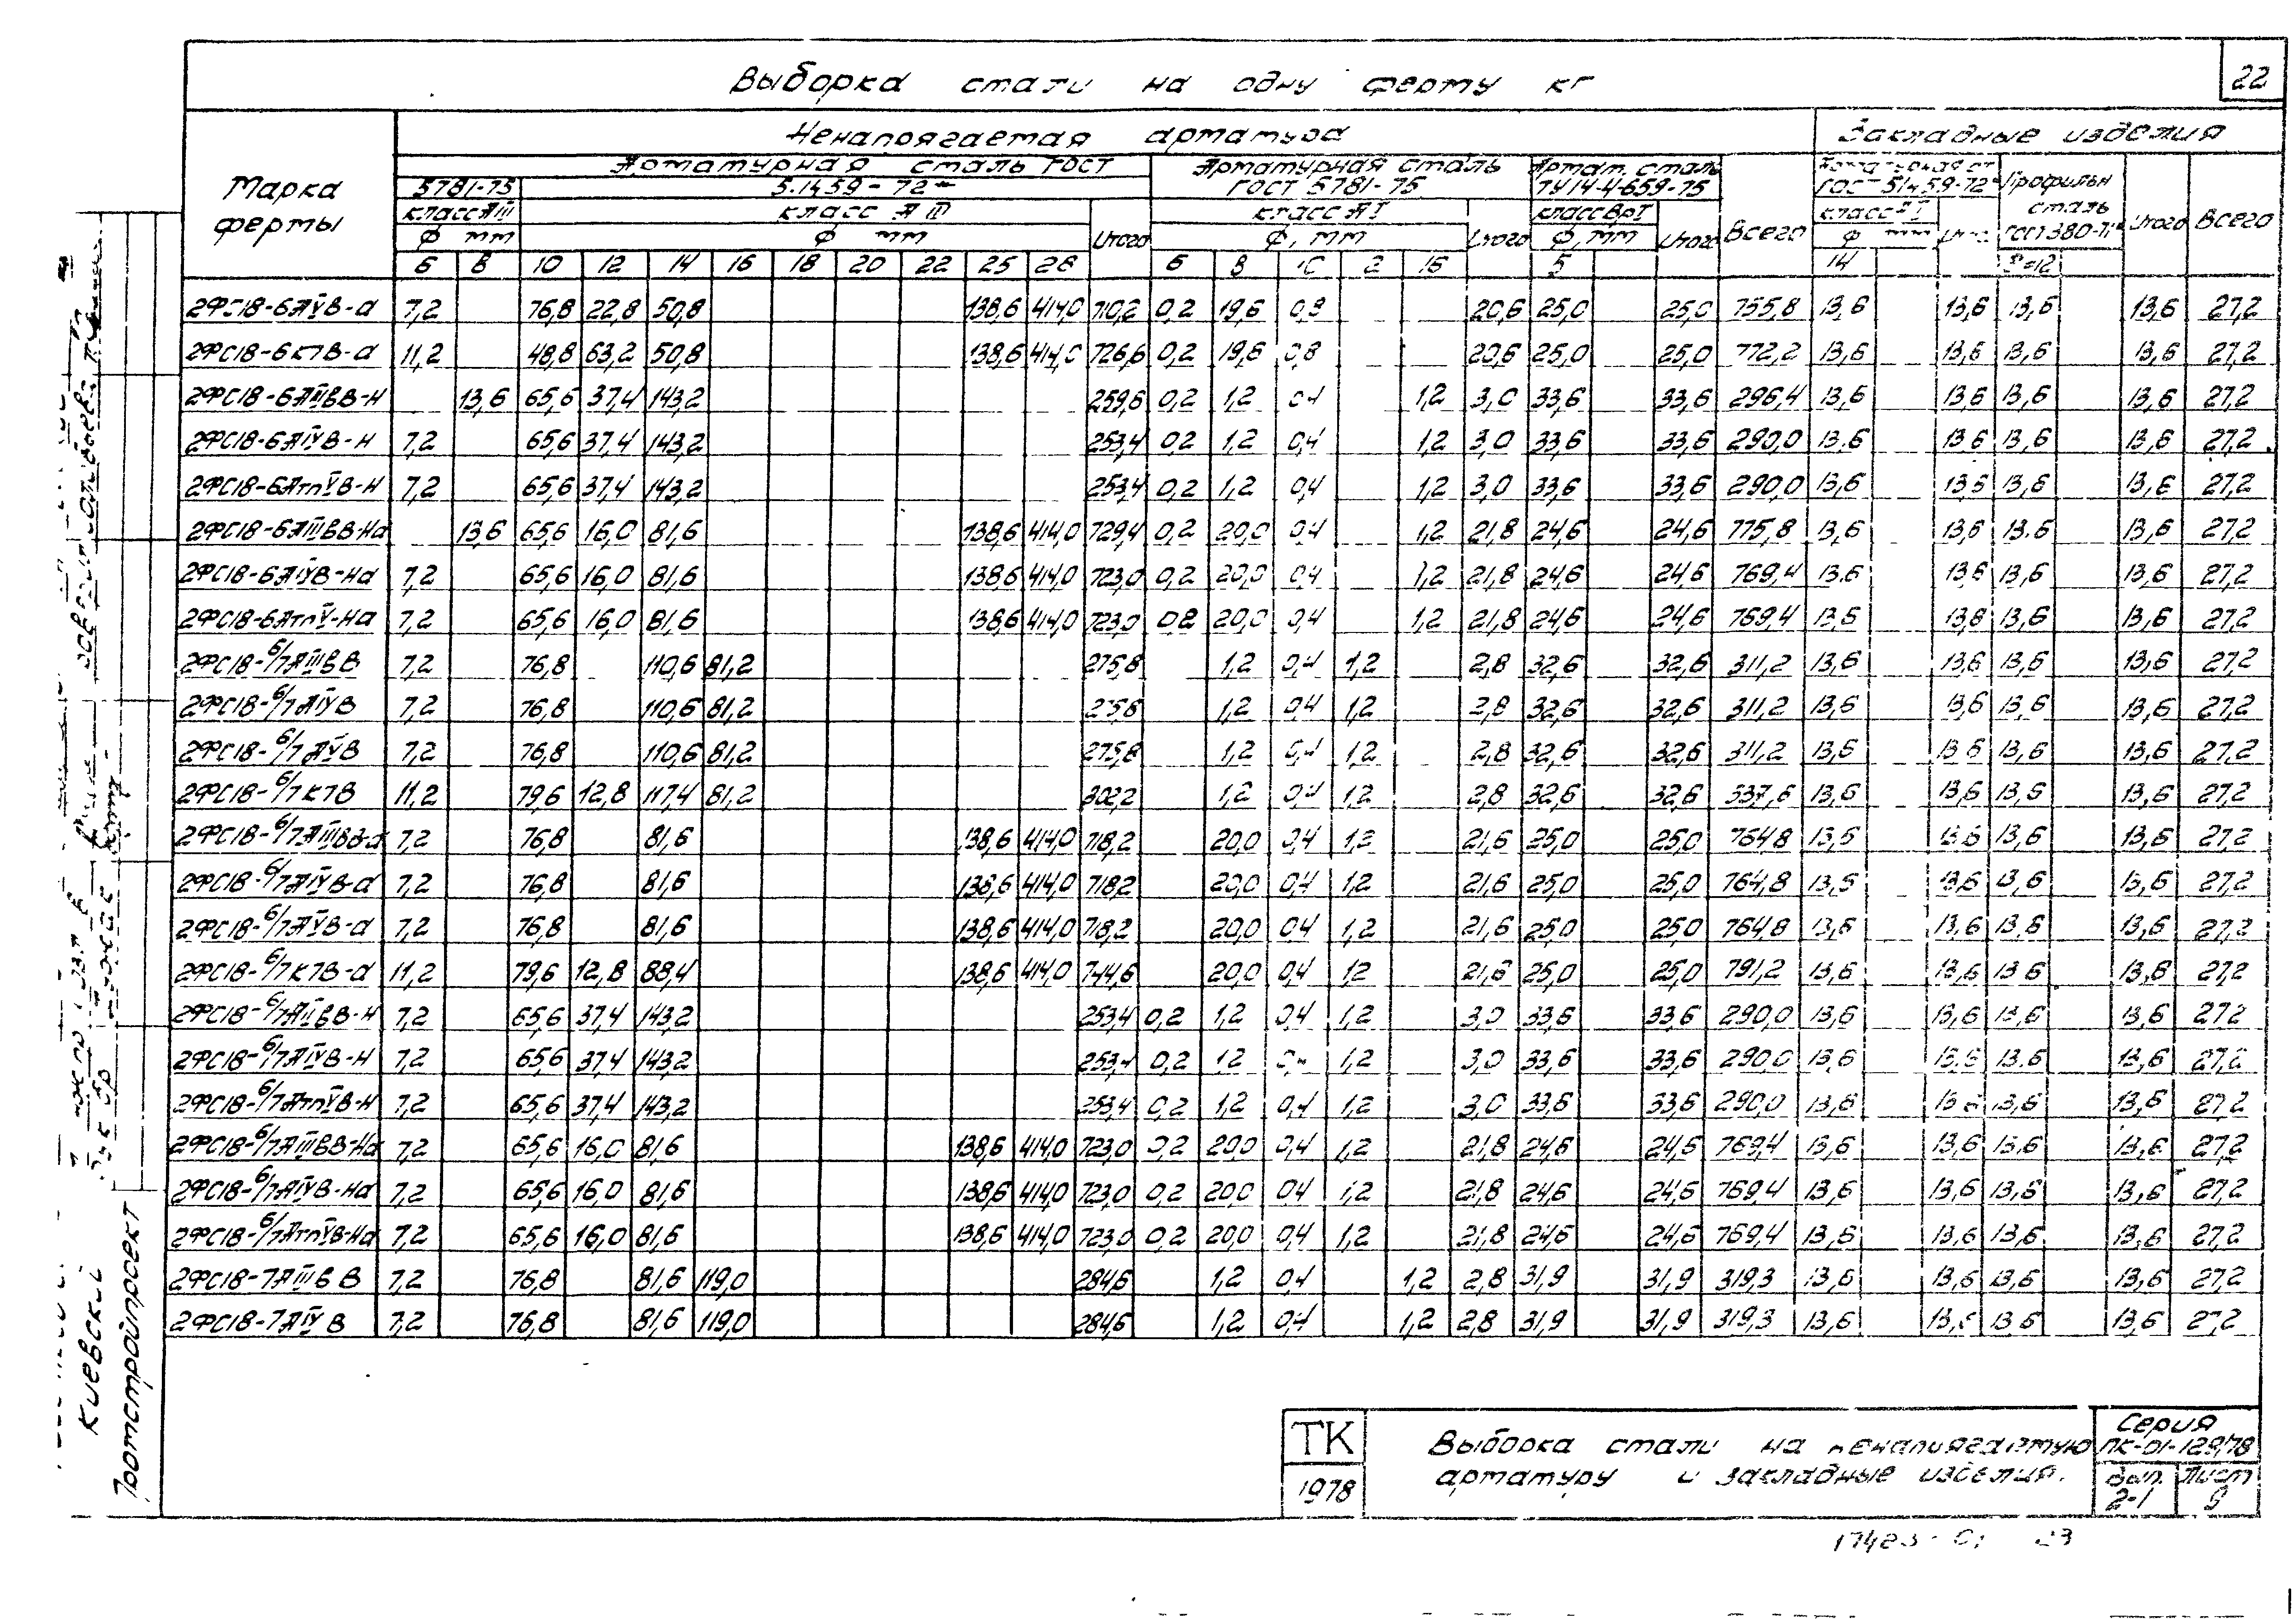 22
Выборка стали на одну ферму кг
Марка фермы
Ненапрягаемая арматура
Закладные изделия
Арматурная сталь ГОСТ
Арматурная сталь ГОСТ 5781-75
Армат. сталь ТУ14-4-659-75
ГОСТ 5.1459-72*
Профильн сталь ГОСТ 380-71*
5781-75
5.1459-72*
класс АIII
класс АIII
Итого
класс АI
Итого
класс ВрI
Итого
Всего
класс АI
Итого
Всего
ф мм
ф мм
ф, мм
ф, мм
ф мм
6 8 10 12 14 16 18 20 22 25 28 6 8 10 12 16 5 14 δ=12
2ФС18-6АIVВ-а 7,2 76,8 22,8 50,8 138,6 414,0 710,2 0,2 19,6 0,8 20,6 25,0 25,0 755,8 13,6 13,6 13,6 13,6 27,2
2ФС18-6К7В-а 11,2 48,8 63,2 50,8 138,6 414,0 726,6 0,2 19,6 0,8 20,6 25,0 25,0 772,2 13,6 13,6 13,6 13,6 27,2
2ФС18-6АIIIвВ-Н 13,6 65,6 37,4 143,2 259,6 0,2 1,2 0,4 1,2 3,0 33,6 33,6 296,4 13,6 13,6 13,6 13,6 27,2
2ФС18-6АIVВ-Н 7,2 65,6 37,4 143,2 253,4 0,2 1,2 0,4 1,2 3,0 33,6 33,6 290,0 13,6 13,6 13,6 13,6 27,2
2ФС18-6АтпVВ-Н 7,2 65,6 37,4 143,2 253,4 0,2 1,2 0,4 1,2 3,0 33,6 33,6 290,0 13,6 13,6 13,6 13,6 27,2
2ФС18-6АIIIвВ-На 13,6 65,6 16,0 81,6 138,6 414,0 729,4 0,2 20,0 0,4 1,2 21,8 24,6 24,6 775,8 13,6 13,6 13,6 13,6 27,2
2ФС18-6АIVВ-На 7,2 65,6 16,0 81,6 138,6 414,0 723,0 0,2 20,0 0,4 1,2 21,8 24,6 24,6 769,4 13,6 13,6 13,6 13,6 27,2
2ФС18-6АтпV-На 7,2 65,6 16,0 81,6 138,6 414,0 723,0 0,2 20,0 0,4 1,2 21,8 24,6 24,6 769,4 13,6 13,6 13,6 13,6 27,2
2ФС18-6/7АIIIвВ 7,2 76,8 110,6 81,2 275,8 1,2 0,4 1,2 2,8 32,6 32,6 311,2 13,6 13,6 13,6 13,6 27,2
2ФС18-6/7АIVВ 7,2 76,8 110,6 81,2 275,8 1,2 0,4 1,2 2,8 32,6 32,6 311,2 13,6 13,6 13,6 13,6 27,2
2ФС18-6/7АVВ 7,2 76,8 110,6 81,2 275,8 1,2 0,4 1,2 2,8 32,6 32,6 311,2 13,6 13,6 13,6 13,6 27,2
2ФС18-6/7К7В 11,2 79,6 12,8 117,4 81,2 302,2 1,2 0,4 1,2 2,8 32,6 32,6 337,6 13,6 13,6 13,6 13,6 27,2
2ФС18-6/7АIIIвВ-а 7,2 76,8 81,6 138,6 414,0 718,2 20,0 0,4 1,2 21,6 25,0 25,0 764,8 13,6 13,6 13,6 13,6 27,2
2ФС18-6/7АIVВ-а 7,2 76,8 81,6 138,6 414,0 718,2 20,0 0,4 1,2 21,6 25,0 25,0 764,8 13,6 13,6 13,6 13,6 27,2
2ФС18-6/7АVВ-а 7,2 76,8 81,6 138,6 414,0 718,2 20,0 0,4 1,2 21,6 25,0 25,0 764,8 13,6 13,6 13,6 13,6 27,2
2ФС18-6/7К7В-а 11,2 79,6 12,8 88,4 138,6 414,0 744,6 20,0 0,4 1,2 21,6 25,0 25,0 791,2 13,6 13,6 13,6 13,6 27,2
2ФС18-6/7АIIIвВ-Н 7,2 65,6 37,4 143,2 253,4 0,2 1,2 0,4 1,2 3,0 33,6 33,6 290,0 13,6 13,6 13,6 13,6 27,2
2ФС18-6/7АIVВ-Н 7,2 65,6 37,4 143,2 253,4 0,2 1,2 0,4 1,2 3,0 33,6 33,6 290,0 13,6 13,6 13,6 13,6 27,2
2ФС18-6/7АтпVВ-Н 7,2 65,6 37,4 143,2 253,4 0,2 1,2 0,4 1,2 3,0 33,6 33,6 290,0 13,6 13,6 13,6 13,6 27,2
2ФС18-6/7АIIIвВ-На 7,2 65,6 16,0 81,6 138,6 414,0 723,0 0,2 20,0 0,4 1,2 21,8 24,6 24,6 769,4 13,6 13,6 13,6 13,6 27,2
2ФС18-6/7АIVВ-На 7,2 65,6 16,0 81,6 138,6 414,0 723,0 0,2 20,0 0,4 1,2 21,8 24,6 24,6 769,4 13,6 13,6 13,6 13,6 27,2
2ФС18-6/7АтпVВ-На 7,2 65,6 16,0 81,6 138,6 414,0 723,0 0,2 20,0 0,4 1,2 21,8 24,6 24,6 769,4 13,6 13,6 13,6 13,6 27,2
2ФС18-7АIIIвВ 7,2 76,8 81,6 119,0 284,6 1,2 0,4 1,2 2,8 31,9 31,9 319,3 13,6 13,6 13,6 13,6 27,2
2ФС18-7АIVВ 7,2 76,8 81,6 119,0 284,6 1,2 0,4 1,2 2,8 31,9 31,9 319,3 13,6 13,6 13,6 13,6 27,2
Киевский
Промстройпроект
ТК
1978
Выборка стали на ненапрягаемую
арматуру и закладные изделия.
Серия
ПК-01-129/78
Вып. Лист
2-1 9